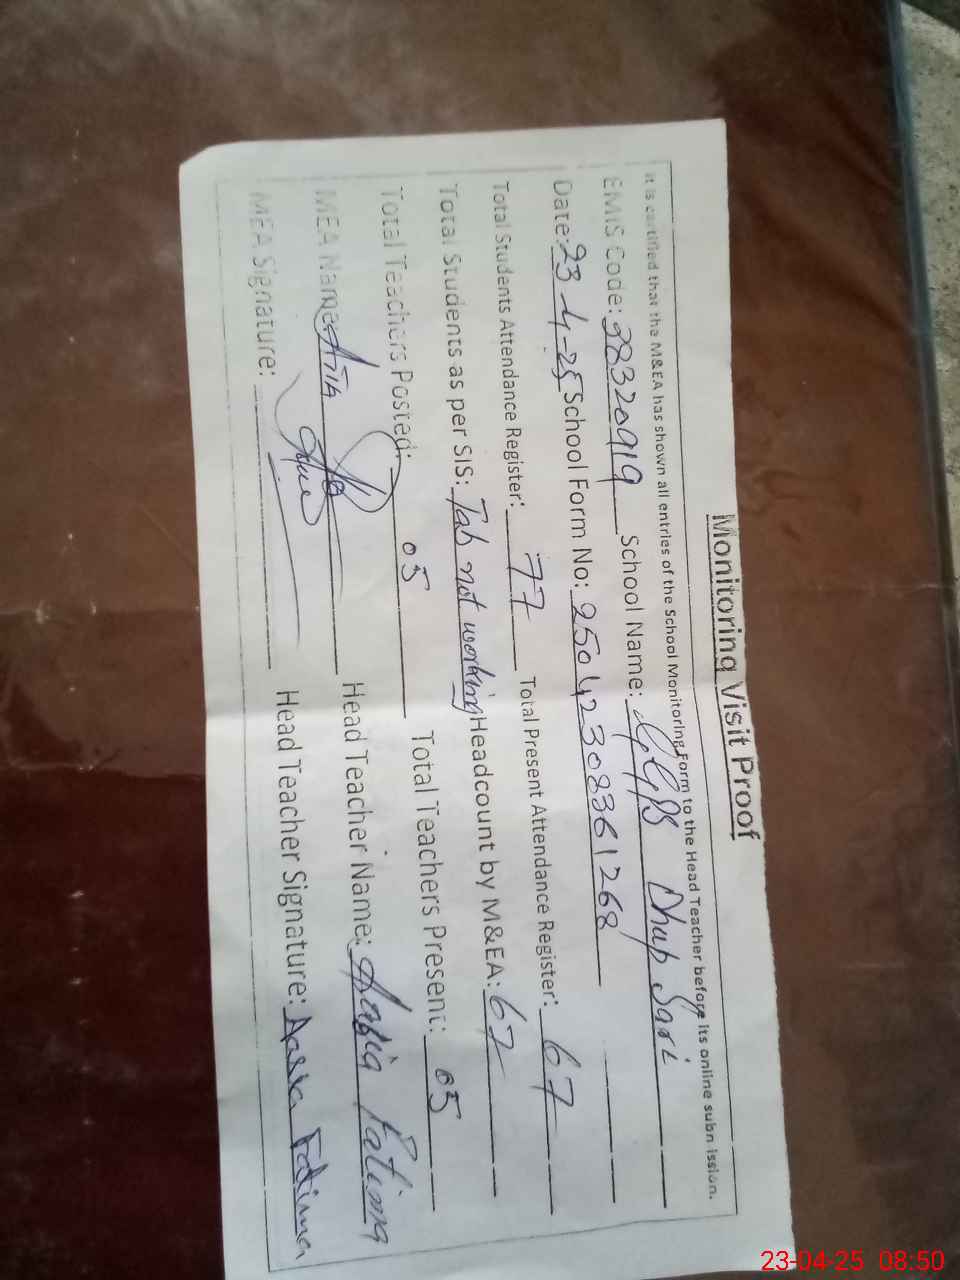 Monitoring Visit Proof
It is certified that the M&EA has shown all entries of the School Monitoring Form to the Head Teacher before its online submission.
EMIS Code: 38320919 School Name: GGPS Dhap Sari
Date: 23-4-25 School Form No: 25042308361268
Total Students Attendance Register: 77 Total Present Attendance Register: 67
Total Students as per SIS: Tab not working Headcount by M&EA: 67
Total Teachers Posted: 05 Total Teachers Present: 05
MEA Name: Head Teacher Name: Fatima
MEA Signature: Head Teacher Signature: Fatima
23-04-25 08:50